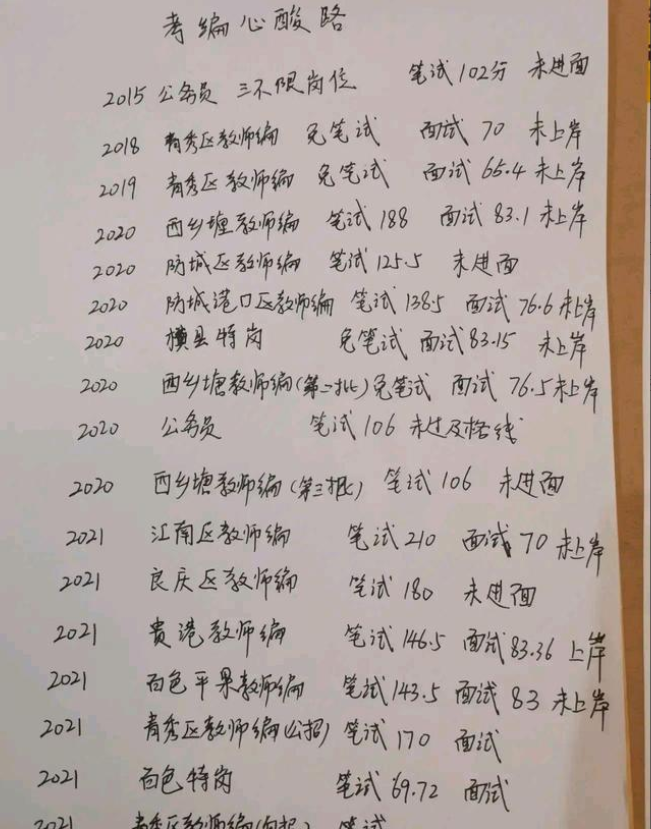 考编心酸路
2015 公务员 三不限岗位 笔试102分 未进面
2018 青秀区教师编 免笔试 面试70 未上岸
2019 青秀区教师编 免笔试 面试65.4 未上岸
2020 西乡塘教师编 笔试188 面试83.1 未上岸
2020 防城区教师编 笔试125.5 未进面
2020 防城港口区教师编 笔试138.5 面试76.6 未上岸
2020 横县特岗 免笔试 面试83.15 未上岸
2020 西乡塘教师编(第二批) 免笔试 面试76.5 未上岸
2020 公务员 笔试106 未过及格线
2020 西乡塘教师编(第三批) 笔试106 未进面
2021 江南区教师编 笔试210 面试70 未上岸
2021 良庆区教师编 笔试180 未进面
2021 贵港教师编 笔试146.5 面试83.36 上岸
2021 百色平果教师编 笔试143.5 面试83 未上岸
2021 青秀区教师编(公招) 笔试170 面试
2021 百色特岗 笔试69.72 面试
2021 青秀区教师编 笔试